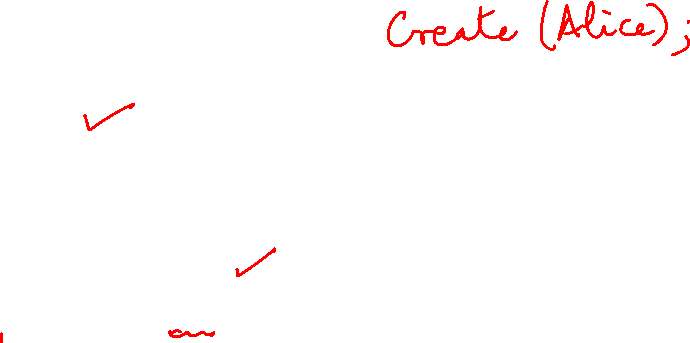 Create (Alice);